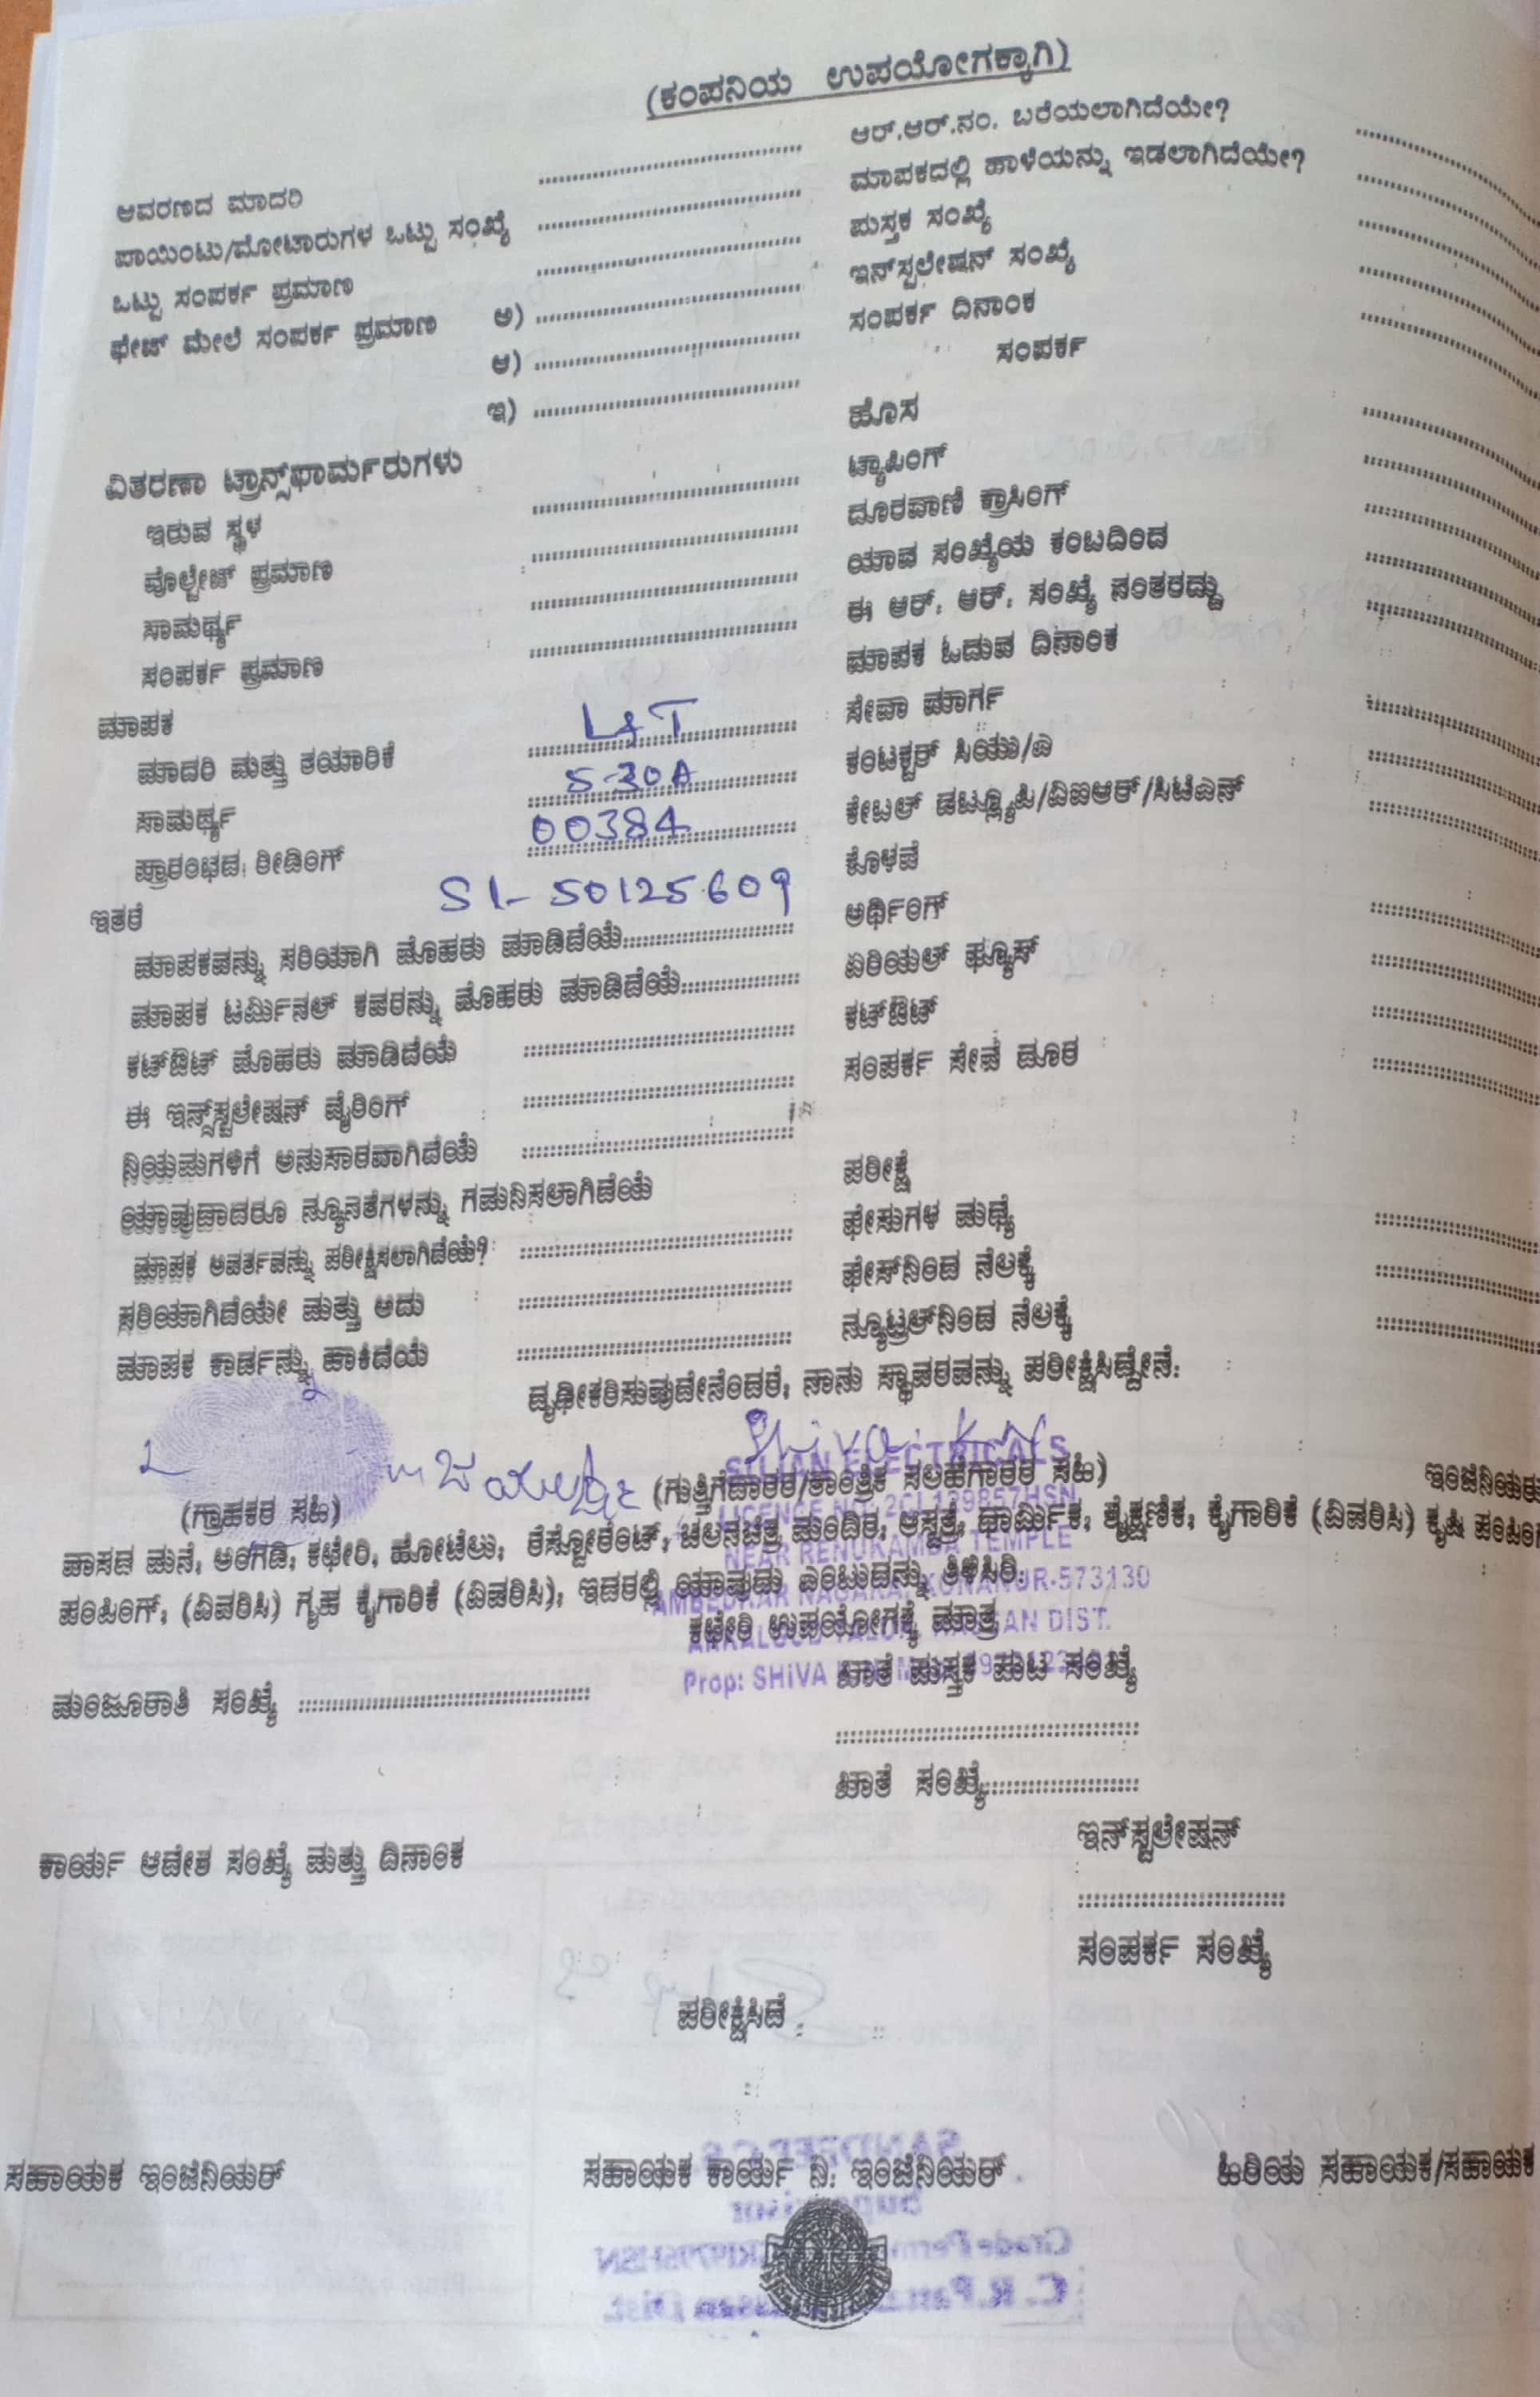 (ಕಂಪನಿಯ ಉಪಯೋಗಕ್ಕಾಗಿ)
ಆವರಣದ ಮಾದರಿ
ಪಾಯಿಂಟು/ಮೋಟಾರುಗಳ ಒಟ್ಟು ಸಂಖ್ಯೆ
ಒಟ್ಟು ಸಂಪರ್ಕ ಪ್ರಮಾಣ
ಫೇಜ್ ಮೇಲೆ ಸಂಪರ್ಕ ಪ್ರಮಾಣ ಅ)
ಆ)
ಇ)
ವಿತರಣಾ ಟ್ರಾನ್ಸ್‌ಫಾರ್ಮರುಗಳು
ಇರುವ ಸ್ಥಳ
ವೋಲ್ಟೇಜ್ ಪ್ರಮಾಣ
ಸಾಮರ್ಥ್ಯ
ಸಂಪರ್ಕ ಪ್ರಮಾಣ
ಮಾಪಕ
ಮಾದರಿ ಮತ್ತು ತಯಾರಿಕೆ L&T
ಸಾಮರ್ಥ್ಯ 5-30A
ಪ್ರಾರಂಭದ ರೀಡಿಂಗ್ 00384
ಇತರೆ Sl- 50125609
ಮಾಪಕವನ್ನು ಸರಿಯಾಗಿ ಮೊಹರು ಮಾಡಿದೆಯೆ
ಮಾಪಕ ಟರ್ಮಿನಲ್ ಕವರನ್ನು ಮೊಹರು ಮಾಡಿದೆಯೆ
ಕಟ್‌ಔಟ್ ಮೊಹರು ಮಾಡಿದೆಯೆ
ಈ ಇನ್ಸ್‌ಸ್ಟಲೇಷನ್ ವೈರಿಂಗ್
ನಿಯಮಗಳಿಗೆ ಅನುಸಾರವಾಗಿದೆಯೆ
ಯಾವುದಾದರೂ ನ್ಯೂನತೆಗಳನ್ನು ಗಮನಿಸಲಾಗಿದೆಯೆ
ಮಾಪಕ ಆವರ್ತವನ್ನು ಪರೀಕ್ಷಿಸಲಾಗಿದೆಯೆ?
ಸರಿಯಾಗಿದೆಯೇ ಮತ್ತು ಅದು
ಮಾಪಕ ಕಾರ್ಡನ್ನು ಹಾಕಿದೆಯೆ
ಆರ್.ಆರ್.ನಂ. ಬರೆಯಲಾಗಿದೆಯೇ?
ಮಾಪಕದಲ್ಲಿ ಹಾಳೆಯನ್ನು ಇಡಲಾಗಿದೆಯೇ?
ಪುಸ್ತಕ ಸಂಖ್ಯೆ
ಇನ್‌ಸ್ಟಲೇಷನ್ ಸಂಖ್ಯೆ
ಸಂಪರ್ಕ ದಿನಾಂಕ
ಸಂಪರ್ಕ
ಹೊಸ
ಟ್ಯಾಪಿಂಗ್
ದೂರವಾಣಿ ಕ್ರಾಸಿಂಗ್
ಯಾವ ಸಂಖ್ಯೆಯ ಕಂಬದಿಂದ
ಈ ಆರ್. ಆರ್. ಸಂಖ್ಯೆ ನಂತರದ್ದು
ಮಾಪಕ ಓದುವ ದಿನಾಂಕ
ಸೇವಾ ಮಾರ್ಗ
ಕಂಟಕ್ಟರ್ ಸಿಯು/ಎ
ಕೇಬಲ್ ಡಬ್ಲ್ಯೂಪಿ/ವಿಐಆರ್/ಸಿಟಿಎಸ್
ಕೊಳವೆ
ಅರ್ಥಿಂಗ್
ಏರಿಯಲ್ ಫ್ಯೂಸ್
ಕಟ್‌ಔಟ್
ಸಂಪರ್ಕ ಸೇವೆ ದೂರ
ಪರೀಕ್ಷೆ
ಫೇಸುಗಳ ಮಧ್ಯೆ
ಫೇಸ್‌ನಿಂದ ನೆಲಕ್ಕೆ
ನ್ಯೂಟ್ರಲ್‌ನಿಂದ ನೆಲಕ್ಕೆ
ದೃಢೀಕರಿಸುವುದೇನೆಂದರೆ, ನಾನು ಸ್ಥಾವರವನ್ನು ಪರೀಕ್ಷಿಸಿದ್ದೇನೆ.
Shiva. K.N
(ಗ್ರಾಹಕರ ಸಹಿ) (ಗುತ್ತಿಗೆದಾರರ/ತಾಂತ್ರಿಕ ಸಲಹೆಗಾರರ ಸಹಿ) ಇಂಜಿನಿಯರ
SUJAN ELECTRICALS
LICENCE No: 2CL129857HSN
NEAR RENUKAMBA TEMPLE
AMBEDKAR NAGARA, KONANUR-573130
DIST.
Prop: SHIVA
ವಾಸದ ಮನೆ, ಅಂಗಡಿ, ಕಛೇರಿ, ಹೋಟೆಲು, ರೆಸ್ಟೋರೆಂಟ್, ಚಲನಚಿತ್ರ ಮಂದಿರ, ಆಸ್ಪತ್ರೆ, ಧಾರ್ಮಿಕ, ಶೈಕ್ಷಣಿಕ, ಕೈಗಾರಿಕೆ (ವಿವರಿಸಿ) ಕೃಷಿ ಪಂಪಿಂಗ
ಪಂಪಿಂಗ್, (ವಿವರಿಸಿ) ಗೃಹ ಕೈಗಾರಿಕೆ (ವಿವರಿಸಿ), ಇದರಲ್ಲಿ ಯಾವುದು ಎಂಬುದನ್ನು ತಿಳಿಸಿರಿ.
ಕಛೇರಿ ಉಪಯೋಗಕ್ಕೆ ಮಾತ್ರ
ಮಂಜೂರಾತಿ ಸಂಖ್ಯೆ
ಖಾತೆ ಪುಸ್ತಕ ಪುಟ ಸಂಖ್ಯೆ
ಖಾತೆ ಸಂಖ್ಯೆ
ಕಾರ್ಯ ಆದೇಶ ಸಂಖ್ಯೆ ಮತ್ತು ದಿನಾಂಕ
ಇನ್‌ಸ್ಟಲೇಷನ್
ಸಂಪರ್ಕ ಸಂಖ್ಯೆ
ಪರೀಕ್ಷಿಸಿದೆ
ಸಹಾಯಕ ಇಂಜಿನಿಯರ್ ಸಹಾಯಕ ಕಾರ್ಯ ನಿ. ಇಂಜಿನಿಯರ್ ಹಿರಿಯ ಸಹಾಯಕ/ಸಹಾಯಕ